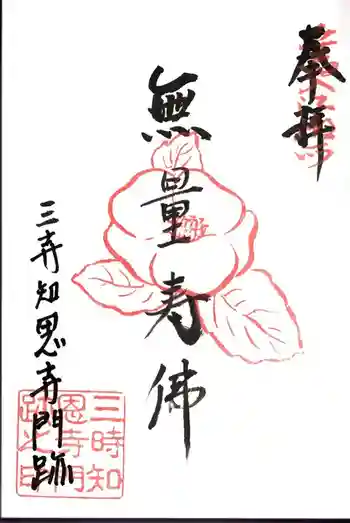 奉拝
無量寿佛
三寺知恩寺門跡
三時知
恩寺門
跡之印